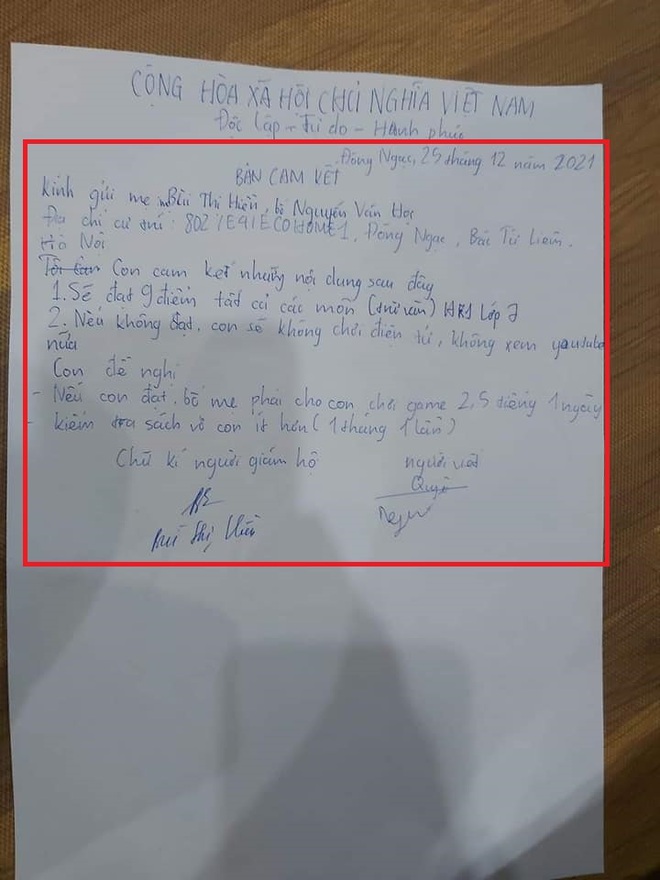 CỘNG HÒA XÃ HỘI CHỦ NGHĨA VIỆT NAM
Độc lập - Tự do - Hạnh phúc
Đông Ngạc, 25 tháng 12 năm 2021
BẢN CAM KẾT
Kính gửi mẹ Bùi Thị Hiền, bố Nguyễn Văn
Địa chỉ cư trú: 802 /E9/ECOHOME1, Đông Ngạc, Bắc Từ Liêm.
Hà Nội
Con cam kết những nội dung sau đây
1. Sẽ đạt 9 điểm tất cả các môn (trừ văn) HK1 Lớp 7
2. Nếu không đạt. con sẽ không chơi điện tử, không xem youtube
nữa
Con đề nghị
- Nếu con đạt, bố mẹ phải cho con chơi game 2,5 tiếng 1 ngày
- kiểm tra sách vở con ít hơn (1 tháng 1 lần)
Chữ kí người giám hộ
người viết
Bùi Thị Hiền